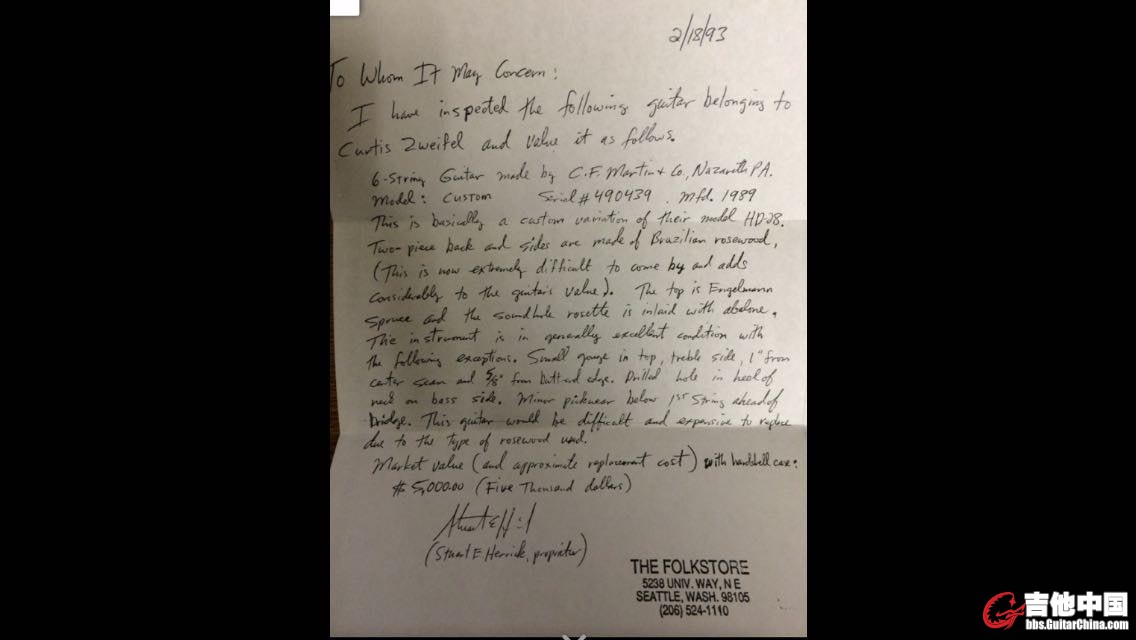 2/18/93
To Whom It May Concern:
I have inspected the following guitar belonging to
Curtis Zweifel and value it as follows.
6-String Guitar made by C.F. Martin & Co., Nazareth PA.
Model: Custom Serial # 490439. Mfd. 1989
This is basically a custom variation of their model HD-28.
Two-piece back and sides are made of Brazilian rosewood,
(This is now extremely difficult to come by and adds
considerably to the guitar's value). The top is Engelmann
Spruce and the soundhole rosette is inlaid with abalone.
The instrument is in generally excellent condition with
the following exceptions. Small gouge in top, treble side, 1" from
center seam and 5/8" from butt end edge. Drilled hole in heel of
neck on bass side. Minor pickwear below 1st String ahead of
bridge. This guitar would be difficult and expensive to replace
due to the type of rosewood used.
Market value (and approximate replacement cost) with hardshell case:
$5,000.00 (Five Thousand dollars)
(Stuart E. Herrick, proprietor)
THE FOLKSTORE
5238 UNIV. WAY, N E
SEATTLE, WASH. 98105
(206) 524-1110
吉他中国
bbs.GuitarChina.com